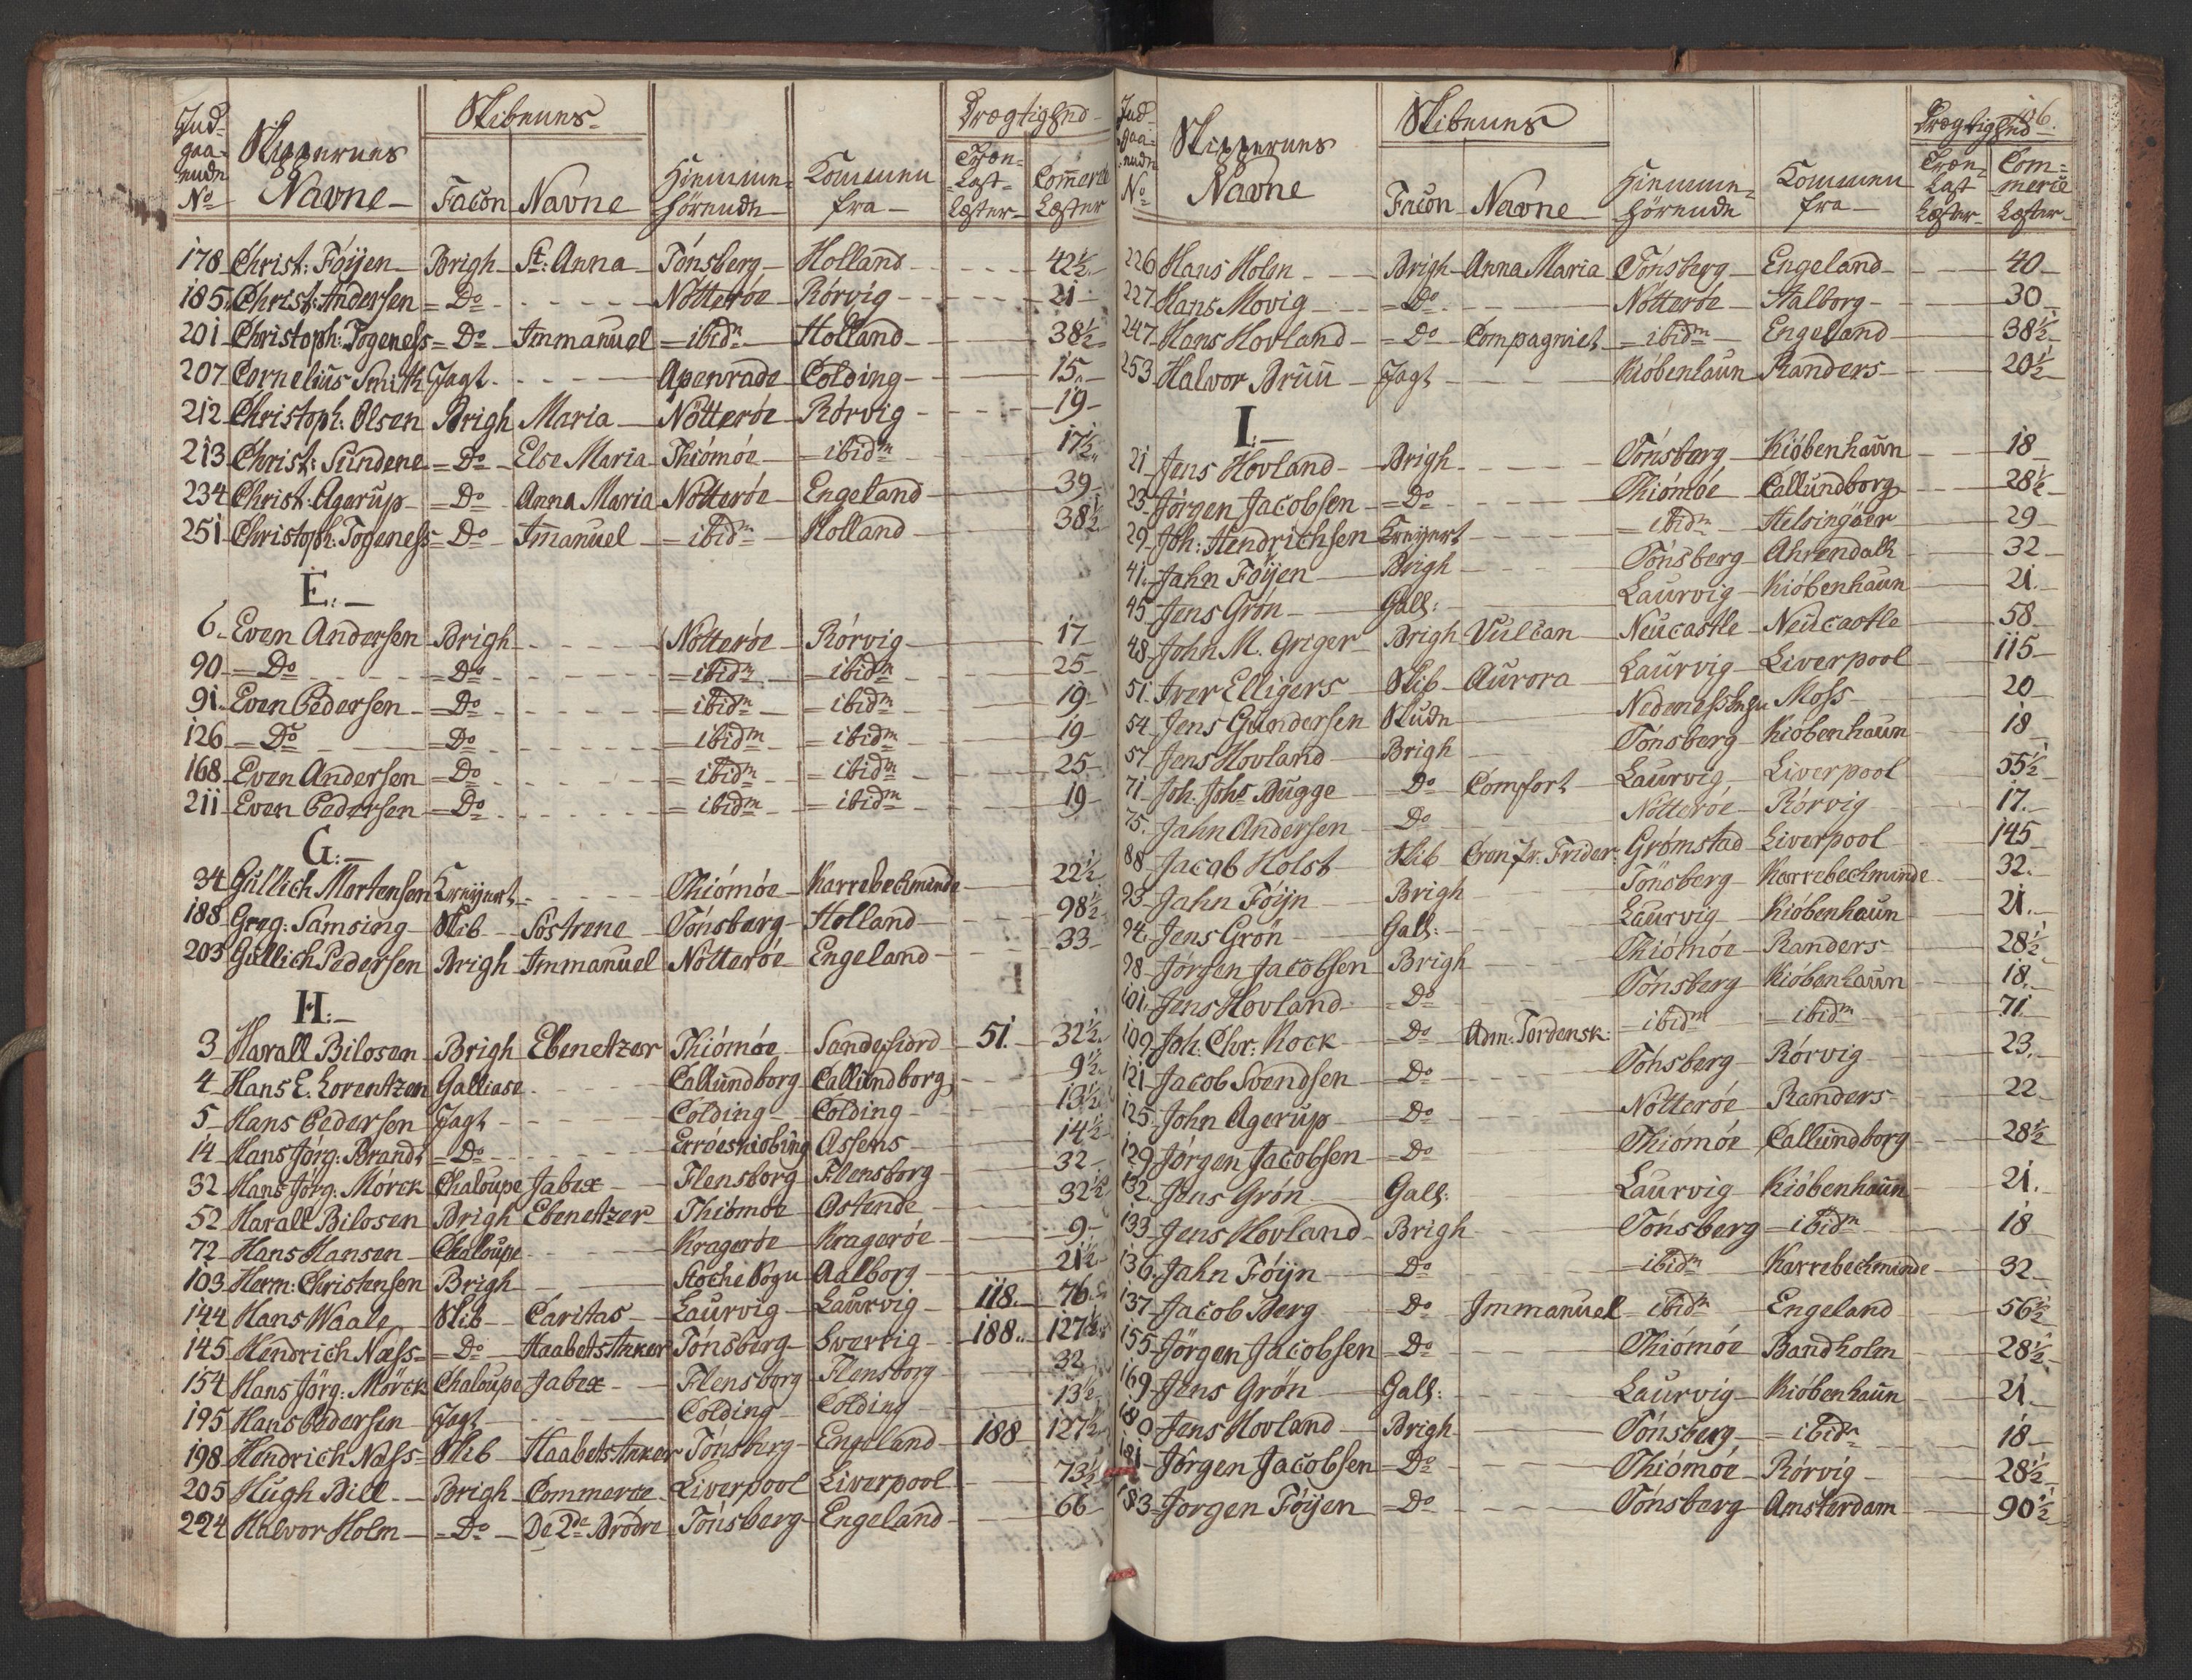 Ind-
gaa-
ende
No
Skippernes
Navne
Skibenes
Facon
Navne
Hiemme-
hörende
Kommen
fra
Drægtighed
Træ-
Last
Læster
Com̄erce
Læster
178 Christ: Föÿen Brigh St: Anna Tönsberg Holland 42½
185 Christ: Andersen = Do Nötteröe Rörvig 21
201 Christoph: Togeness = Do Immanuel = ibidm Holland 38½
207 Cornelius Smith Jagt Apenrade Colding 15
212 Christoph: Olsen Brigh Maria Nötteröe Rörvig 19
213 Christ: Sundene = Do Else Maria Thiömöe = ibidm 17½
234 Christ: Agerup = Do Anna Maria Nötteröe Engeland 39
251 Christoph: Togeness = Do Im̄anuel = ibidm Holland 38½
E:
6 Even Andersen Brigh Nötteröe Rörvig 17
90 = Do = Do = ibidm = ibidm 25
91 Even Pedersen = Do = ibidm = ibidm 19
126 = Do = Do = ibidm = ibidm 19
168 Even Andersen = Do = ibidm = ibidm 25
211 Even Pedersen = Do = ibidm = ibidm 19
G:
34 Gullich Mortensen Kreyert Thiömöe Karrebechminde 22½
188 Greg: Samsing Skib Söstrene Tönsberg Holland 98½
203 Gullich Pedersen Brigh Immanuel Nötteröe Engeland 33
H:
3 Harall Bilosen Brigh Ebenetzer Thiömöe Sandefiord 51. 32½
4 Hans E. Lorentzen Galliase Callundborg Callundborg 9½
5 Hans Pedersen Jagt Colding Colding 13½
14 Hans Jörg: Brandt = Do Erröeskiöbing Assens 14½
32 Hans Jörg: Mörck Chaloupe Jabex Flensborg Flensborg 32
52 Harall Bilosen Brigh Ebenetzer Thiömöe Ostende 32½
72 Hans Hansen Chaloupe Krageröe Krageröe 9
103 Herm: Christensen Brigh Stoche Sogn Aalborg 21½
144 Hans Waale Skib Caritas Laurvig Laurvig 118. 76
145 Hendrich Næss = Do Haabets Anker Tönsberg Sverrig 188. 127½
154 Hans Jörg: Mörck Chaloupe Jabex Flensborg Flensborg 32
195 Hans Pedersen Jagt Colding Colding 13½
198 Hendrich Næss Skib Haabets Anker Tönsberg Engeland 188 127½
205 Hugh Bill Brigh Commerce Liverpool Liverpool 73½
224 Halvor Holm = Do De 2de Brödre Tönsberg Engeland 66
106.
Ind-
gaa-
ende
No
Skippernes
Navne
Skibenes
Facon
Navne
Hiemme-
hörende
Kommen
fra
Drægtighed
Træ-
Last
Læster
Com-
merce
Læster
226 Hans Holm Brigh Anna Maria Tönsberg Engeland 40
227 Hans Movig = Do Nötteröe Aalborg 30
247 Hans Hovland = Do Compagniet = ibidm Engeland 38½
253 Halvor Bruu Jagt Kiöbenhaun Randers 20½
I:
21 Jens Hovland Brigh Tönsberg Kiöbenhavn 18
23 Jörgen Jacobsen = Do Thiömöe Callundborg 28½
29 Joh: Hendrichsen Kreyert = ibidm Helsingöer 29
41 Jahn Föÿen Brigh Tönsberg Ahrendall 32
45 Jens Grön Gall: Laurvig Kiöbenhaun 21.
48 John M. Griger Brigh Vulcan Neucastle Neucastle 58
51 Iver Elligers Skib Aurora Laurvig Liverpool 115
54 Jens Gundersen Skude Moss 20
57 Jens Hovland Brigh Tönsberg Kiöbenhaun 18
71 Joh. Johs Bugge Do Comfort Laurvig Liverpool 55½
75 Jahn Andersen Do Nötteröe Rörvig 17
88 Jacob Holst Skib Cron Pr. Frider: Grömstad Liverpool 145
93 Jahn Föijn Brigh Tönsberg Karrebechminde 32.
94 Jens Grön Gall: Laurvig Kiöbenhaun 21.
98 Jörgen Jacobsen Brigh Thiömöe Randers 28½
101 Jens Hovland Do Tönsberg Kiöbenhaun 18.
109 Joh: Chr: Kock Do Adm: Tordensk: = ibidm = ibidm 71
121 Jacob Svendsen Do Tönsberg Rörvig 23.
125 John Agerup Do Nötteröe Randers 22
129 Jörgen Jacobsen Do Thiömöe Callundborg 28½
132 Jens Grön Gall: Laurvig Kiöbenhaun 21.
133 Jens Hovland Brigh Tönsberg = ibidm 18
136 Jahn Föijn Do = ibidm Karrebechminde 32
137 Jacob Berg Do Immanuel = ibidm Engeland 56½
155 Jörgen Jacobsen Do Thiömöe Bandholm 28½
169 Jens Grön Gall: Laurvig Kiöbenhaun 21
180 Jens Hovland Brigh Tönsberg = ibidm 18
181 Jörgen Jacobsen Do Thiömöe Rörvig 28½
183 Jörgen Föÿen Do Tönsberg Amsterdam 90½